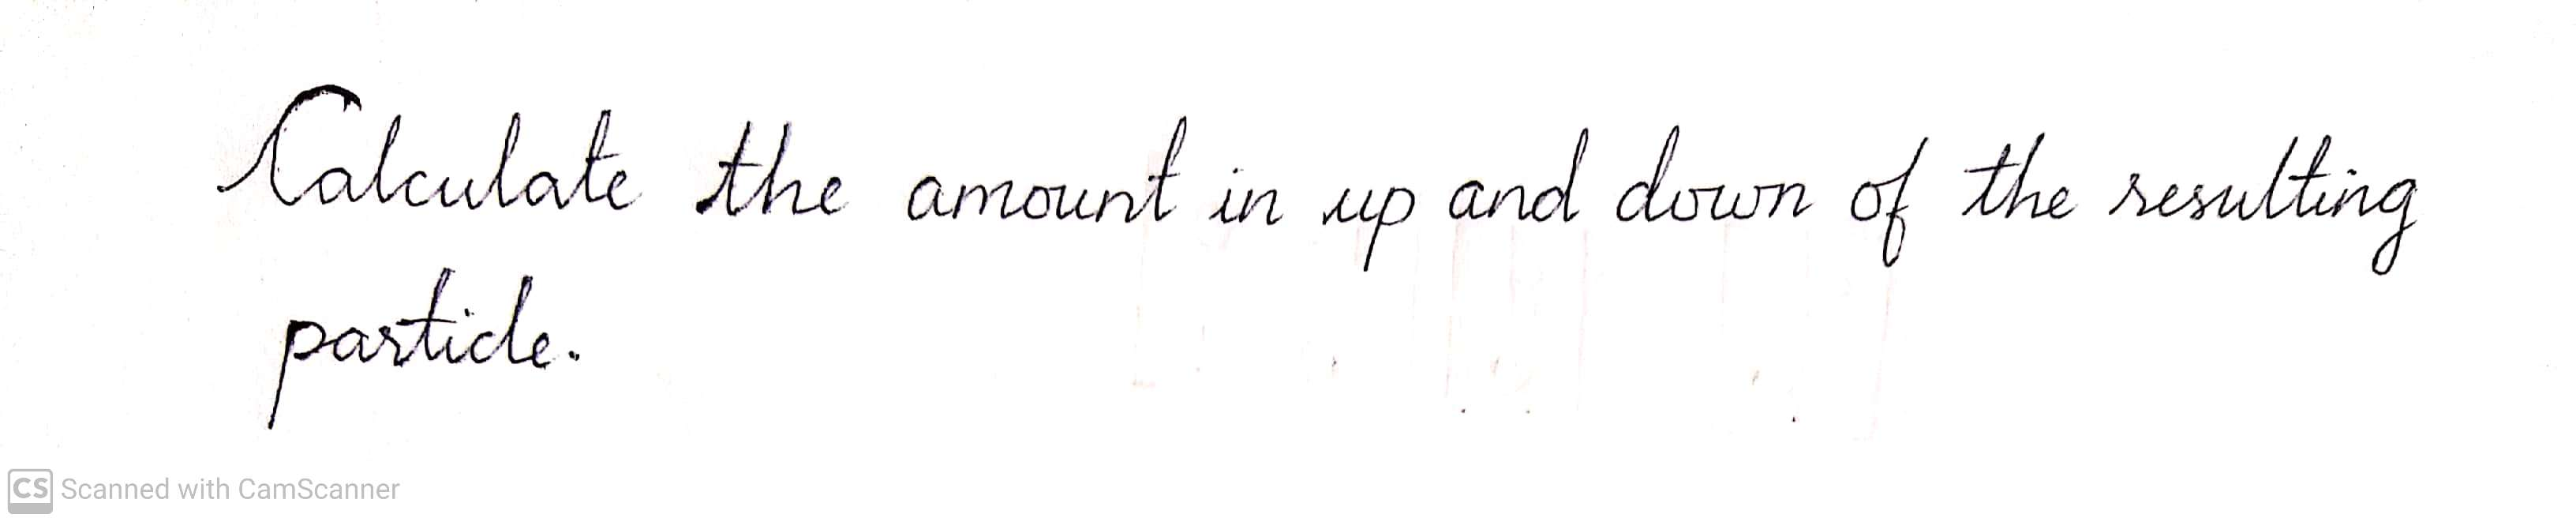 Calculate the amount in up and down of the resulting
particle.
CS Scanned with CamScanner